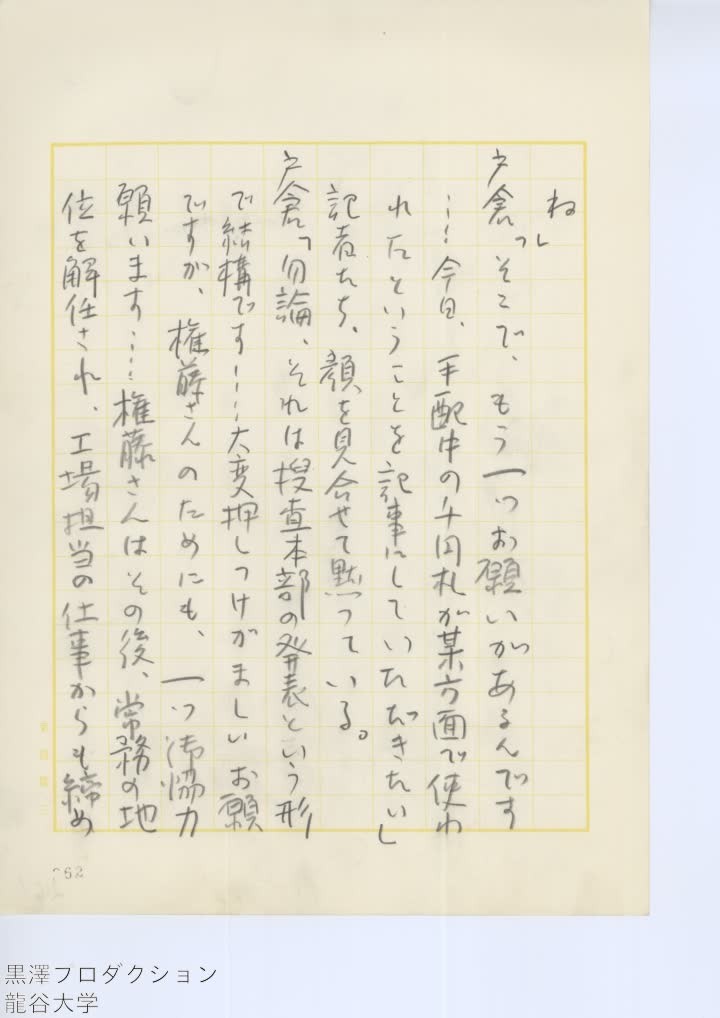 ね」
戸倉「そこで、もう一つお願いがあるんです
……今日、手配中の千円札が某方面で使わ
れたということを記事にしていただきたい」
記者たち、顔を見合せて黙っている。
戸倉「勿論、それは捜査本部の発表という形
で結構です……大変押しつけがましいお願
ですが、権藤さんのためにも、一つ御協力
願います……権藤さんはその後、常務の地
位を解任され、工場担当の仕事からも締め
62
黒澤プロダクション
龍谷大学